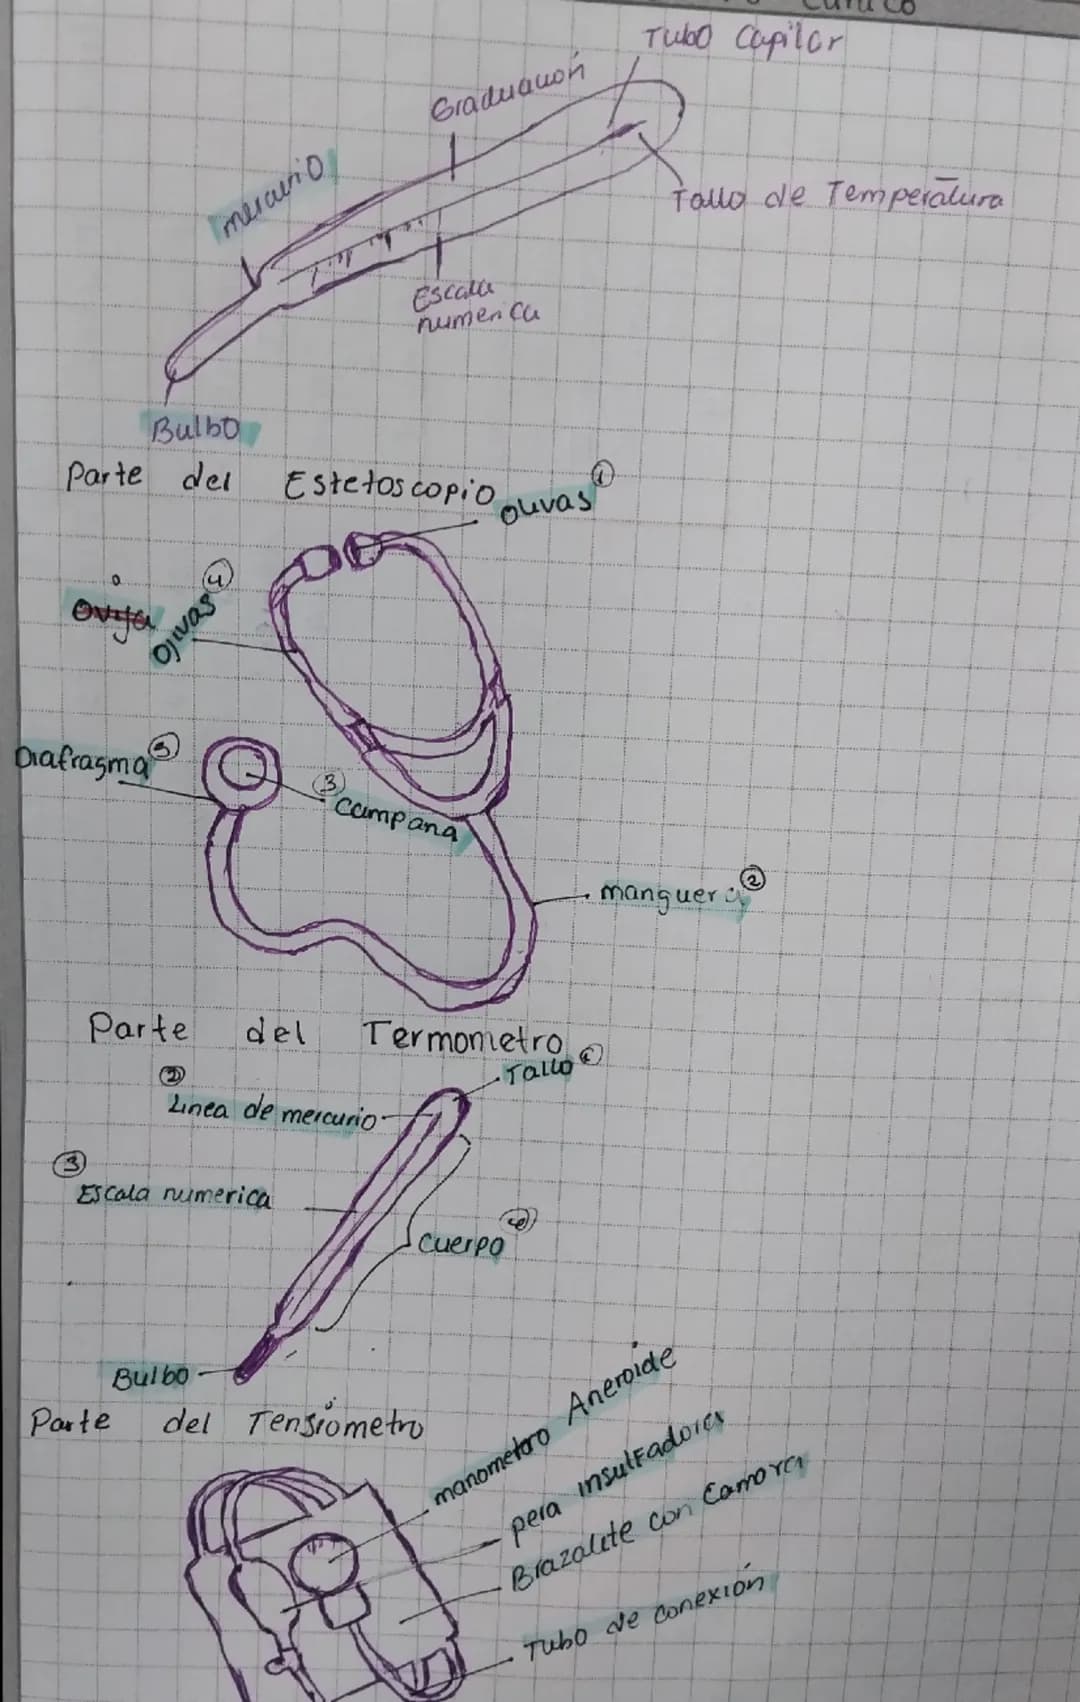 Tubo Capilar
Graduación
mercurio
Tallo de Temperatura
Escala
numerica
Bulbo
Parte del Estetoscopio
olivas 1
Ojivas 4
Diafragma
3 Campana
manguera 2
Parte del Termometro
Tallo
2
Linea de mercurio
3
Escala numerica
Cuerpo
Bulbo
Parte del Tensiómetro
manometro Aneroide
pera insulfadores
Brazalete con Camara
Tubo de conexión